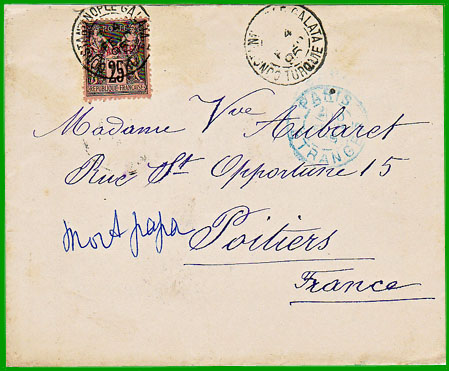 CONSTANTINOPLE GALATA
25
RÉPUBLIQUE FRANÇAISE
GALATA
4
95
TURQUIE
PARIS
ETRANGER
Madame Vve Aubaret
Rue St Opportune 15
Mort papa
Poitiers
France